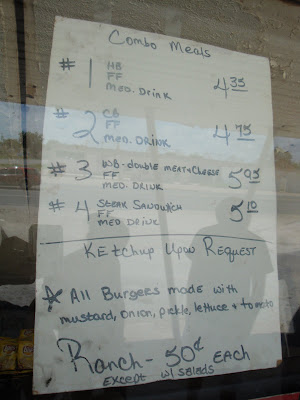 Combo Meals
#1 HB 4.35
FF
MED. DRINK
#2 CB 4.75
FF
MED. DRINK
#3 WB-double meat+cheese 5.95
FF
MED. DRINK
#4 STEAK SANDWICH 5.10
FF
MED DRINK
KEtchup Upon REquest
☆ All Burgers made with
mustard, onion, pickle, lettuce + tomato
Ranch - 50¢ EACH
EXCEPT w/ salads